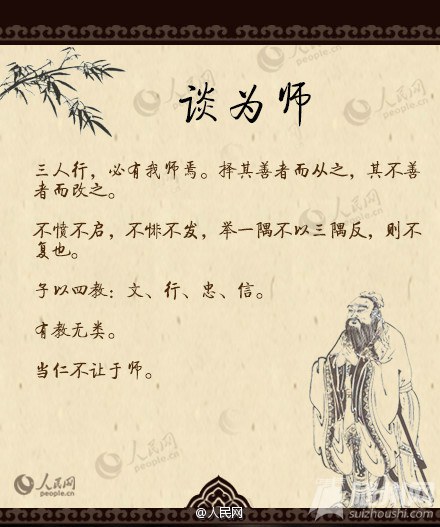 人民网
人民网
谈为师
三人行，必有我师焉。择其善者而从之，其不善
者而改之。
不愤不启，不悱不发，举一隅不以三隅反，则不
复也。
子以四教：文、行、忠、信。
有教无类。
当仁不让于师。
人民网
人民网
人民网
people.cn
@人民网
suizhoushi.com